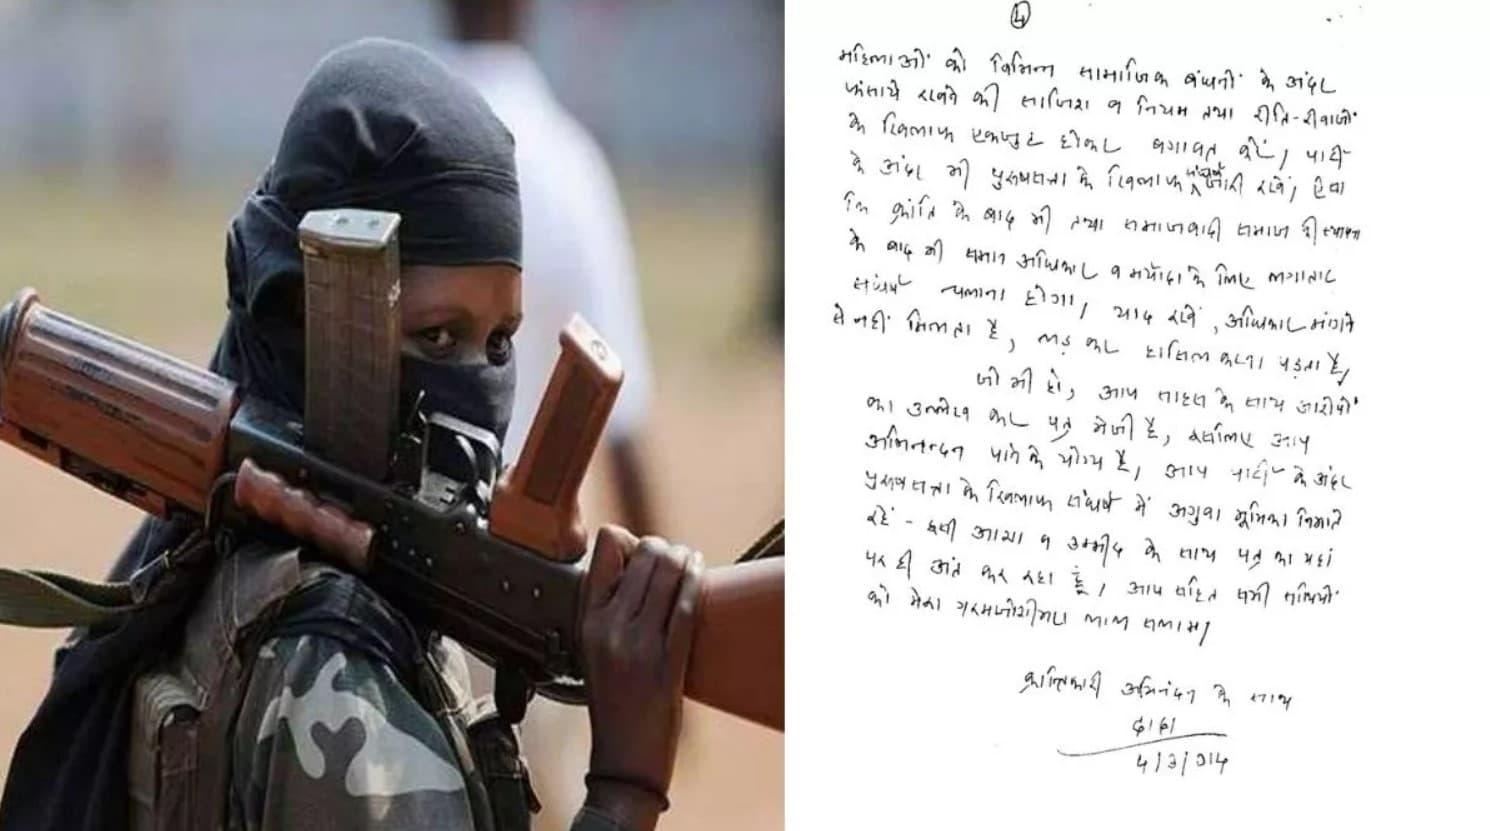 ५
महिलाओं को विभिन्न सामाजिक बंधनों के अंदर
फंसाये रखने की साजिश व नियम तथा रीति-रीवाजों
के खिलाफ एकजुट होकर बगावत करें, पार्टी
के अंदर भी पुरुषसत्ता के खिलाफ संघर्ष जारी रखें,
कि क्रांति के बाद भी तथा समाजवादी समाज की स्थापना
के बाद भी समान अधिकार व मर्यादा के लिए लगातार
संघर्ष चलाना होगा, याद रखें, अधिकार मांगने
से नहीं मिलता है, लड़ कर हासिल करना पड़ता है,
जो भी हो, आप साहस के साथ आरोपों
का उल्लेख कर पत्र भेजी है, इसलिए आप
अभिनन्दन पाने के योग्य है, आप पार्टी के अंदर
पुरुषसत्ता के खिलाफ संघर्ष में अगुवा भूमिका निभाते
रहें - इसी आशा व उम्मीद के साथ पत्र का यहां
पर ही अंत कर रहा हूं, आप सहित सभी साथियों
को मेरा गरमजोशीभरा लाल सलाम,
क्रान्तिकारी अभिनंदन के साथ
दादा